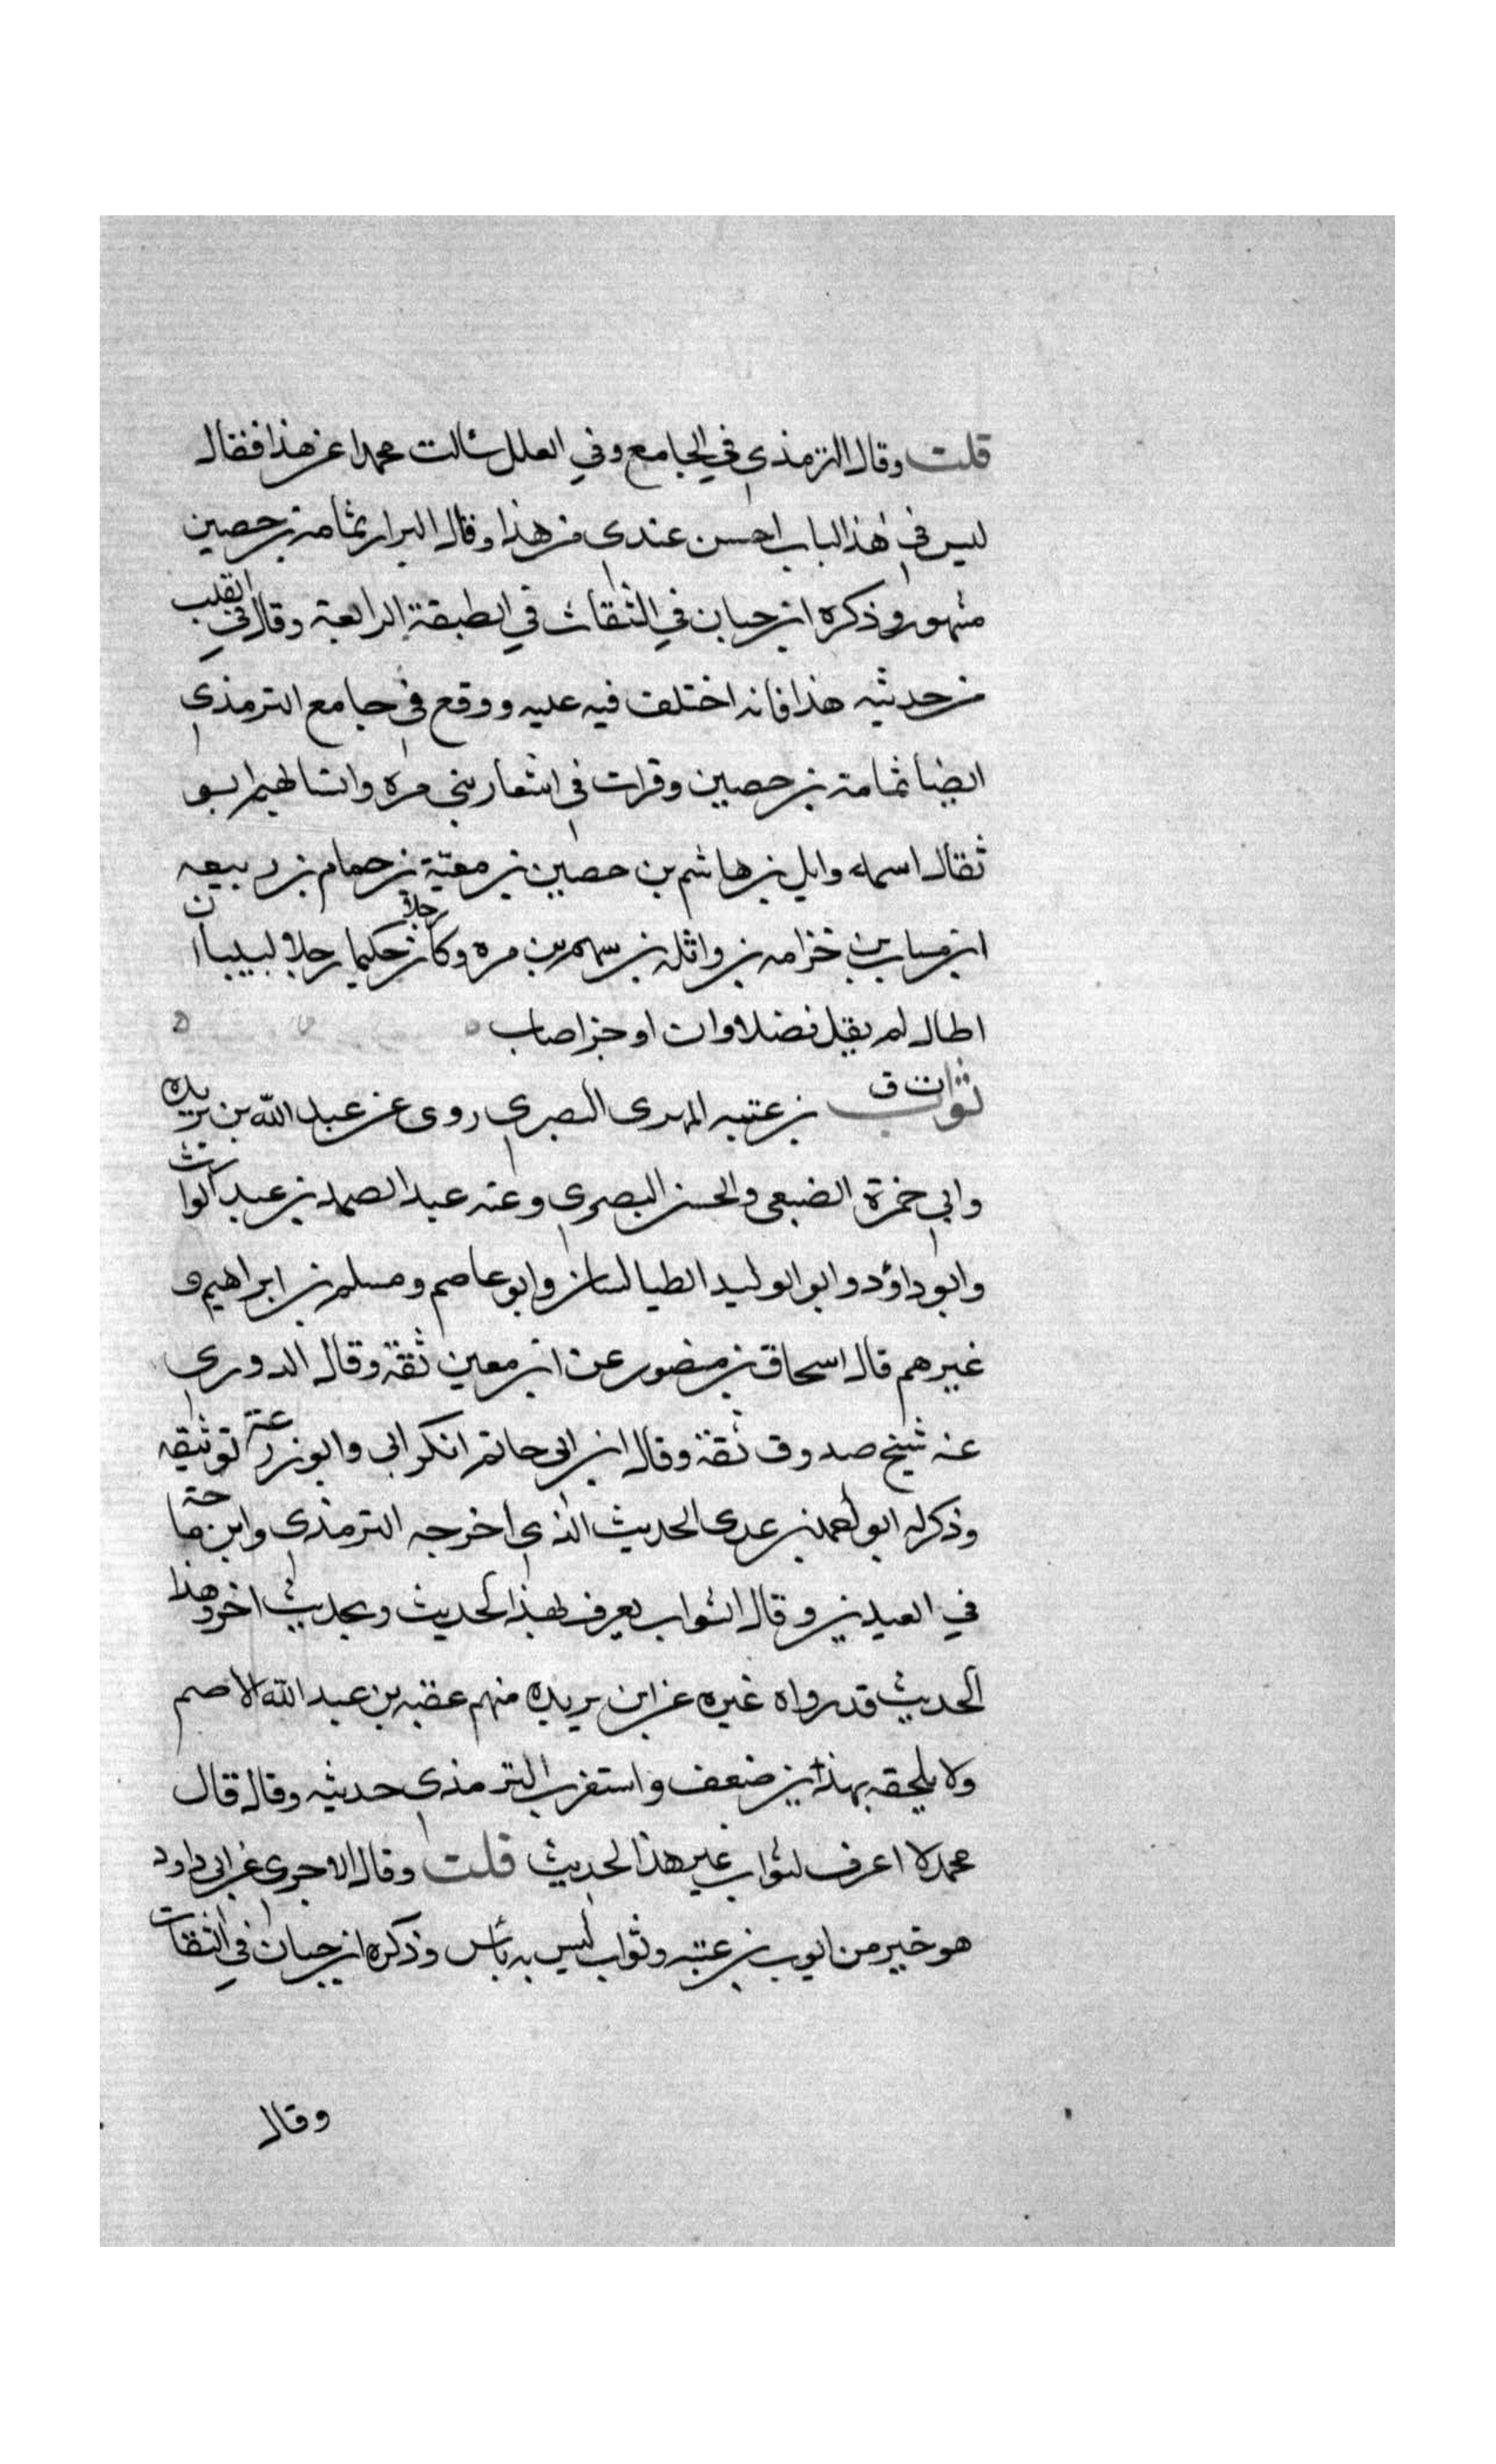 قلت وقال الترمذي في الجامع وفي العلل سالت محمدا عن هذا فقال
ليس في هذا الباب احسن عندي من هذا وقال البزار ثمامة بن حصين
مشهور وذكره ابن حبان في الثقات في الطبقة الرابعة وقال في القلب
من حديثه هذا فانه اختلف فيه عليه ووقع في جامع الترمذي
ايضا ثمامة بن حصين وقرات في اشعار بني مره وانسابهم ابو
ثقال اسمه وايل بن هاشم بن حصين بن معية بن حمام بن ربيعه
ابن مساب بن خزامه بن واثله بن سهم بن مره وكان حكيما رجلا لبيبا ان
اطال لم يقل فضلا وان اوجز اصاب
ثواب ت ق بن عتبه المهرى البصري روى عن عبد الله بن بريده
وابي حمزة الضبعي والحسن البصرى وعنه عبد الصمد بن عبد الوارث
وابو داؤد وابو الوليد الطيالسان وابو عاصم ومسلم بن ابراهيم و
غيرهم قال اسحاق بن منصور عن ابن معين ثقة وقال الدوري
عنه شيخ صدوق ثقة وقال ابن ابى حاتم انكر ابى وابو زرعة توثيقه
وذكر له ابو احمد بن عدى الحديث الذي اخرجه الترمذي وابن ماجة
في العيدين وقال الثواب يعرف بهذا الحديث وبحديث اخر وهذا
الحديث قد رواه غيره عن ابن بريده منهم عقبه بن عبد الله الاصم
ولا يلحقه بهذا ين ضعف واستغرب الترمذي حديثه وقال قال
محمد لا اعرف لثواب غير هذا الحديث قلت وقال الاجرى عن ابى داود
هو خير من ايوب بن عتبه وثواب ليس به بأس وذكره ابن حبان في الثقات
وقال